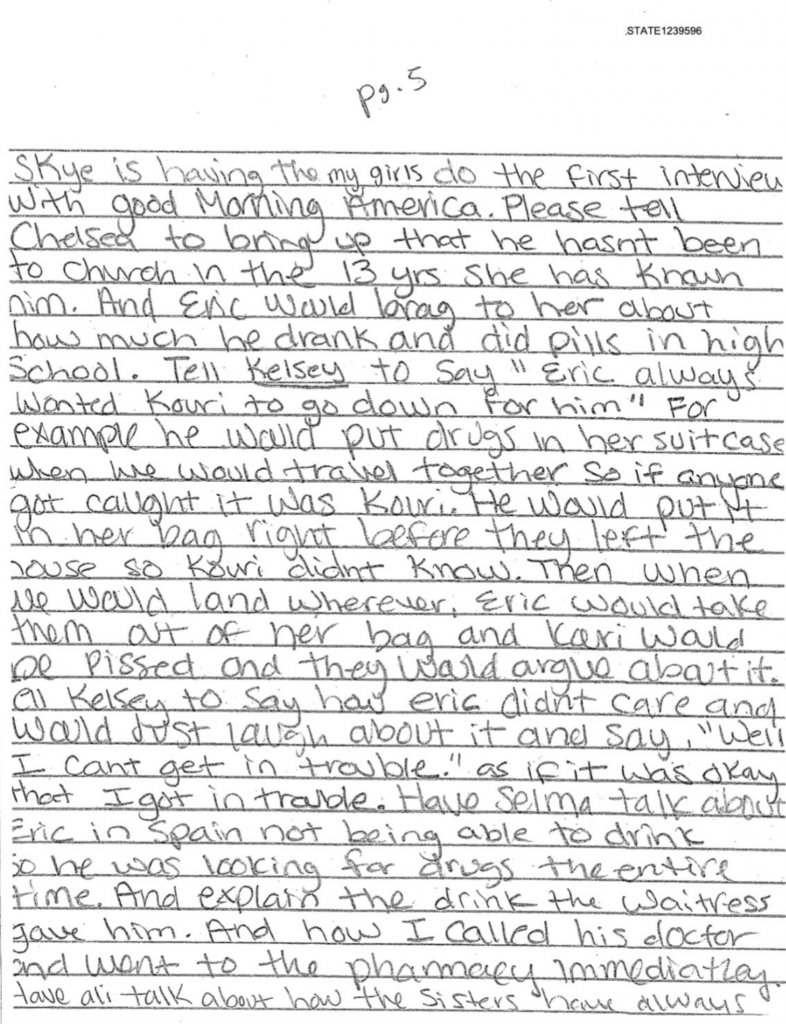 STATE1239596
pg. 5
Skye is having the my girls do the first interview
with good Morning America. Please tell
Chelsea to bring up that he hasnt been
to church in the 13 yrs she has known
him. And Eric would brag to her about
how much he drank and did pills in high
School. Tell Kelsey to say "Eric always
wanted Kouri to go down for him" For
example he would put drugs in her suitcase
when we would travel together so if anyone
got caught it was Kouri. He would put it
in her bag right before they left the
house so Kouri didnt know. Then when
we would land wherever, Eric would take
them out of her bag and Kouri would
be pissed and they would argue about it.
ell Kelsey to say how eric didnt care and
would just laugh about it and say, "Well
I cant get in trouble." as if it was okay
that I got in trouble. Have Selma talk about
Eric in Spain not being able to drink
so he was looking for drugs the entire
time. And explain the drink the waitress
gave him. And how I called his doctor
and went to the pharmacy immediatley.
Have ali talk about how the sisters have always